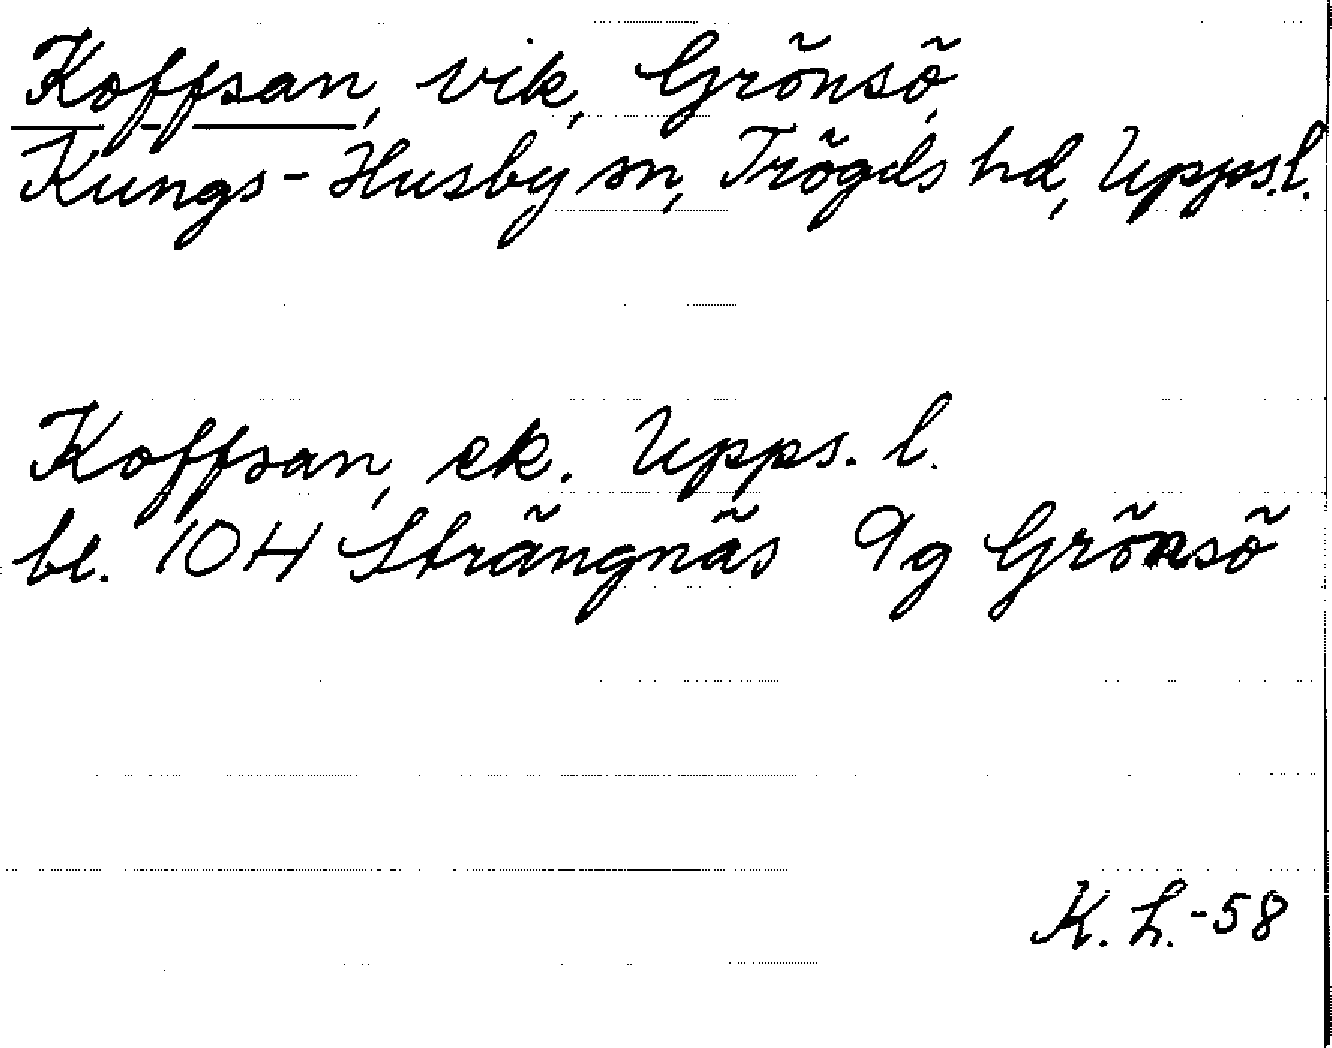 Koffsan, vik, Grönsö,
Kungs-Husby sn, Trögds hd, Upps.l.
Koffsan, ek. Upps. l.
bl. 10H Strängnäs 9g Grönsö
K.L.-58